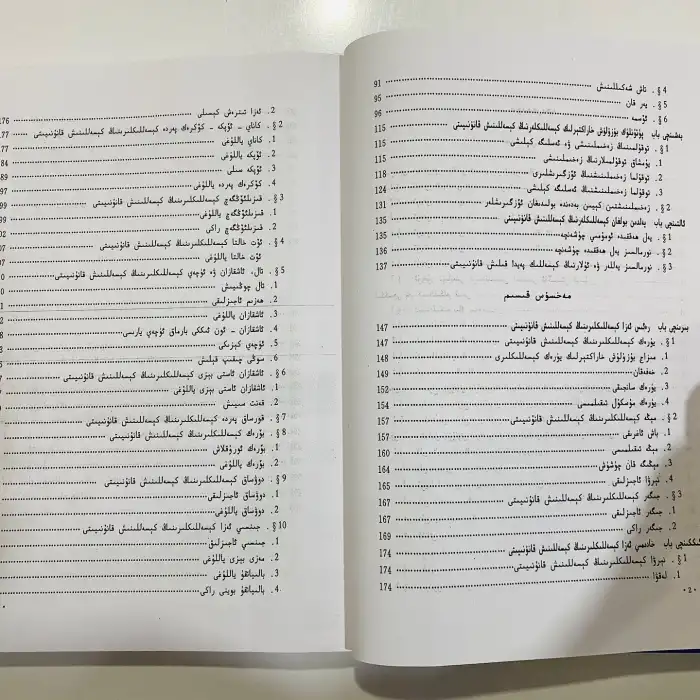 §4 . تاش شەكىللىنىش 91
§5 . پەر قان 95
§6 . ئۆسمە 96
بەشىنچى باب پۈتۈنلۈك بۇزۇلۇش خاراكتېرلىك كېسەللىكلەرنىڭ كېسەللىنىش قانۇنىيىتى 115
§1 . توقۇلمىنىڭ زەخمىلىنىشى ۋە ئەسلىگە كېلىشى 115
1. يۇمشاق توقۇلمىلارنىڭ زەخمىلىنىشى 115
2. توقۇلما زەخمىلىنىشىنىڭ ئۆزگىرىشلىرى 118
3. توقۇلما زەخمىلىنىشىنىڭ ئەسلىگە كېلىشى 124
§2 . زەخمىلىنىشتىن كېيىن بەدەندە بولىدىغان ئۆزگىرىشلەر 131
ئالتىنچى باب يەلدىن بولغان كېسەللىكلەرنىڭ كېسەللىنىش قانۇنىيىتى 135
§1 . يەل ھەققىدە ئومۇمىي چۈشەنچە 135
§2 . نورمالسىز يەل ھەققىدە چۈشەنچە 136
§3 . نورمالسىز يەللەر ۋە ئۇلارنىڭ كېسەللىك پەيدا قىلىش قانۇنىيىتى 137
مەخسۇس قىسىم
بىرىنچى باب رەئىس ئەزا كېسەللىكلىرىنىڭ كېسەللىنىش قانۇنىيىتى 147
§1 . يۈرەك كېسەللىكلىرىنىڭ كېسەللىنىش قانۇنىيىتى 147
1. مىزاج بۇزۇلۇش خاراكتېرلىك يۈرەك كېسەللىكلىرى 148
2. خەفەقان 149
3. يۈرەك سانجىقى 152
4. يۈرەك مۇسكۇل تىقىلمىسى 154
§2 . مېڭە كېسەللىكلىرىنىڭ كېسەللىنىش قانۇنىيىتى 157
1. باش ئاغرىقى 157
2. مېڭە تىقىلمىسى 160
3. مېڭىگە قان چۈشۈش 164
4. نېرۋا ئاجىزلىقى 165
§3 . جىگەر كېسەللىكلىرىنىڭ كېسەللىنىش قانۇنىيىتى 167
1. جىگەر ئاجىزلىقى 167
2. جىگەر راكى 169
ئىككىنچى باب خادىمىي ئەزا كېسەللىكلىرىنىڭ كېسەللىنىش قانۇنىيىتى 174
§1 . نېرۋا كېسەللىكلىرىنىڭ كېسەللىنىش قانۇنىيىتى 174
1. لەقۋا 174
· 2 ·
2. ئەزا تىترەش كېسىلى 176
§2 . كاناي - ئۆپكە - كۆكرەك پەردە كېسەللىكلىرىنىڭ كېسەللىنىش قانۇنىيىتى 77
1. كاناي ياللۇغى 77
2. ئۆپكە ياللۇغى 84
3. ئۆپكە سىلى 89
4. كۆكرەك پەردە ياللۇغى 97
§3 . قىزىلئۆڭگەچ كېسەللىكلىرىنىڭ كېسەللىنىش قانۇنىيىتى 99
1. قىزىلئۆڭگەچ ياللۇغى 99
2. قىزىلئۆڭگەچ راكى 02
§4 . ئۆت خالتا كېسەللىكلىرىنىڭ كېسەللىنىش قانۇنىيىتى 07
ئۆت خالتا ياللۇغى 07
§5 . تال، ئاشقازان ۋە ئۈچەي كېسەللىكلىرىنىڭ كېسەللىنىش قانۇنىيىتى 0
1. تال چوڭىيىش 0
2. ھەزىم ئاجىزلىقى 1
3. ئاشقازان ياللۇغى
4. ئاشقازان - ئون ئىككى بارماق ئۈچەي يارىسى 8
5. ئۈچەي كېزىكى 3
6. سوقۇر ئۈچەي
§6 . ئاشقازان ئاستى بېزى كېسەللىكلىرىنىڭ كېسەللىنىش قانۇنىيىتى
1. ئاشقازان ئاستى بېزى ياللۇغى
2. قەنت سىيىش
§7 . قورساق پەردە كېسەللىكلىرىنىڭ كېسەللىنىش قانۇنىيىتى
§8 . بۆرەك كېسەللىكلىرىنىڭ كېسەللىنىش قانۇنىيىتى
1. بۆرەك ئورۇقلاش
2. بۆرەك ياللۇغى
§9 . دوۋساق كېسەللىكلىرىنىڭ كېسەللىنىش قانۇنىيىتى
1. دوۋساق ئاجىزلىقى
2. دوۋساق ياللۇغى
§10 . جىنسىي ئەزا كېسەللىكلىرىنىڭ كېسەللىنىش قانۇنىيىتى
1. جىنسىي ئاجىزلىق
2. مەزى بېزى ياللۇغى
3. بالىياتقۇ ياللۇغى
4. بالىياتقۇ بوينى راكى